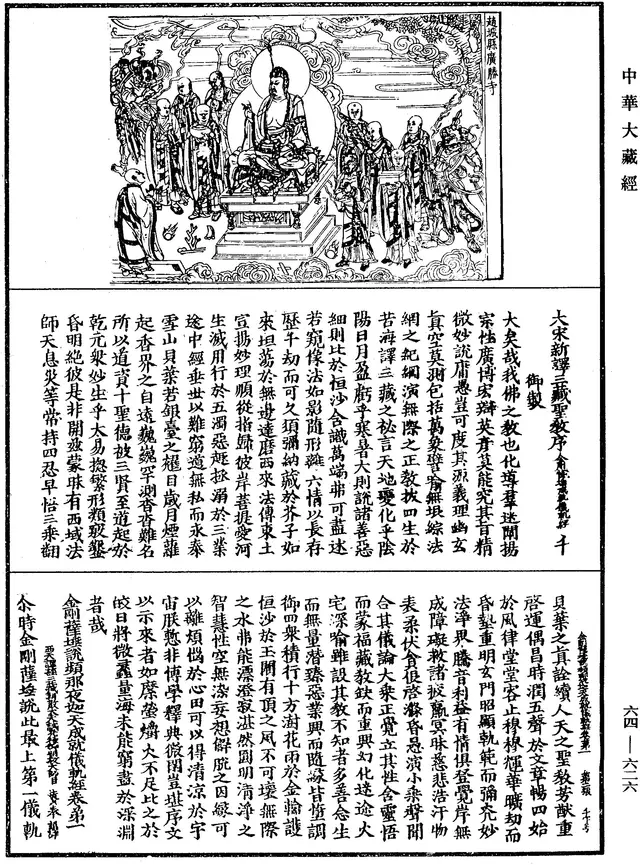 中華大藏經
趙城縣廣勝寺
大宋新譯三藏聖教序
御製
大矣哉我佛之教也化導羣迷闡揚
宗性廣博宏辯英彥莫能究其旨精
微妙說庸愚豈可度其源義理幽玄
真空莫測包括萬象譬喻無垠綜法
網之紀綱演無際之正教拔四生於
苦海譯三藏之祕言天地變化乎陰
陽日月盈虧乎寒暑大則說諸善惡
細則比於恒沙含識萬端弗可盡述
若窺像法如影隨形離六情以長存
歷千劫而可久須彌納藏於芥子如
來坦蕩於無邊達磨西來法傳東土
宣揚妙理順從指歸彼岸菩提愛河
生滅用行於五濁惡趣拯溺於三業
途中經垂世以難窮道無私而永泰
雪山貝葉若銀臺之耀目歲月煙蘿
起香界之自遠巍巍罕測杳杳難名
所以道資十聖德被三賢至道起於
乾元衆妙生乎太易揔繁形類竅鑿
昏明絕彼是非開茲蒙昧有西域法
師天息災等常持四忍早悟三乘翻
貝葉之真詮續人天之聖教芳猷重
啓運偶昌時潤五聲於文章暢四始
於風律堂堂容止穆穆輝華曠劫而
昏墊重明玄門昭顯軌範而彌光妙
法淨界騰音利益有情俱登覺岸無
成障礙救諸疲羸冥昧慈悲浩汗物
表柔伏貪佷啓迪昏愚演小乘聲聞
合其儀論大乘正覺立其性含靈悟
而蒙福藏教缺而重興幻化迷途火
宅深喻雖設其教不知者多善念生
而無量潛臻惡業興而隨緣皆墮調
御四衆積行十方澍花雨於金輪護
恒沙於玉闕有頂之風不可壞無際
之水弗能漂澄寂湛然圓明清淨之
智慧性空無染妄想解脫之因緣可
以離煩惱於心田可以得清涼於宇
宙朕慙非博學釋典微閑豈堪序文
以示來者如縻螢爝火不足比之於
皎日將微蠡量海未能窮盡於深淵
者哉
金剛薩埵說頻那夜迦天成就儀軌經卷第一
尒時金剛薩埵說此最上第一儀軌
六四—六二六